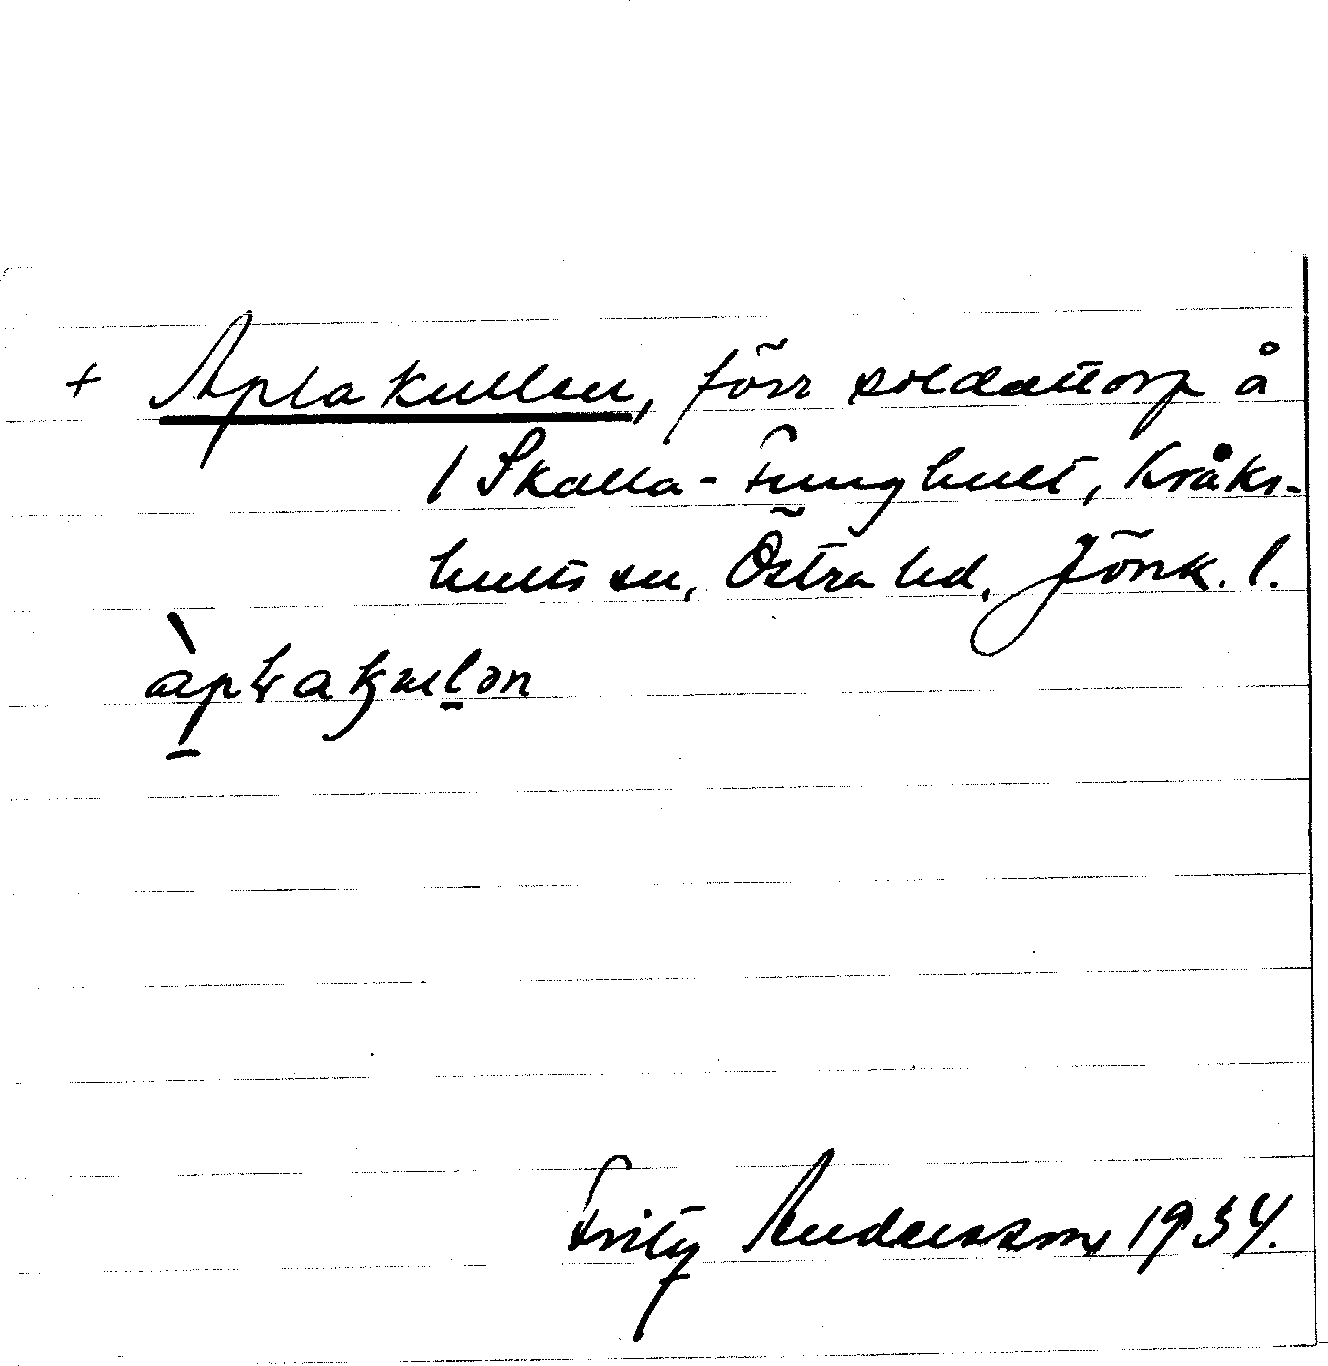 + Aplakullen, förr soldattorp å
1 Skalla-Funghult, Kråks-
hults sn, Östra hd, Jönk. l.
Fritz Andersson 1934.